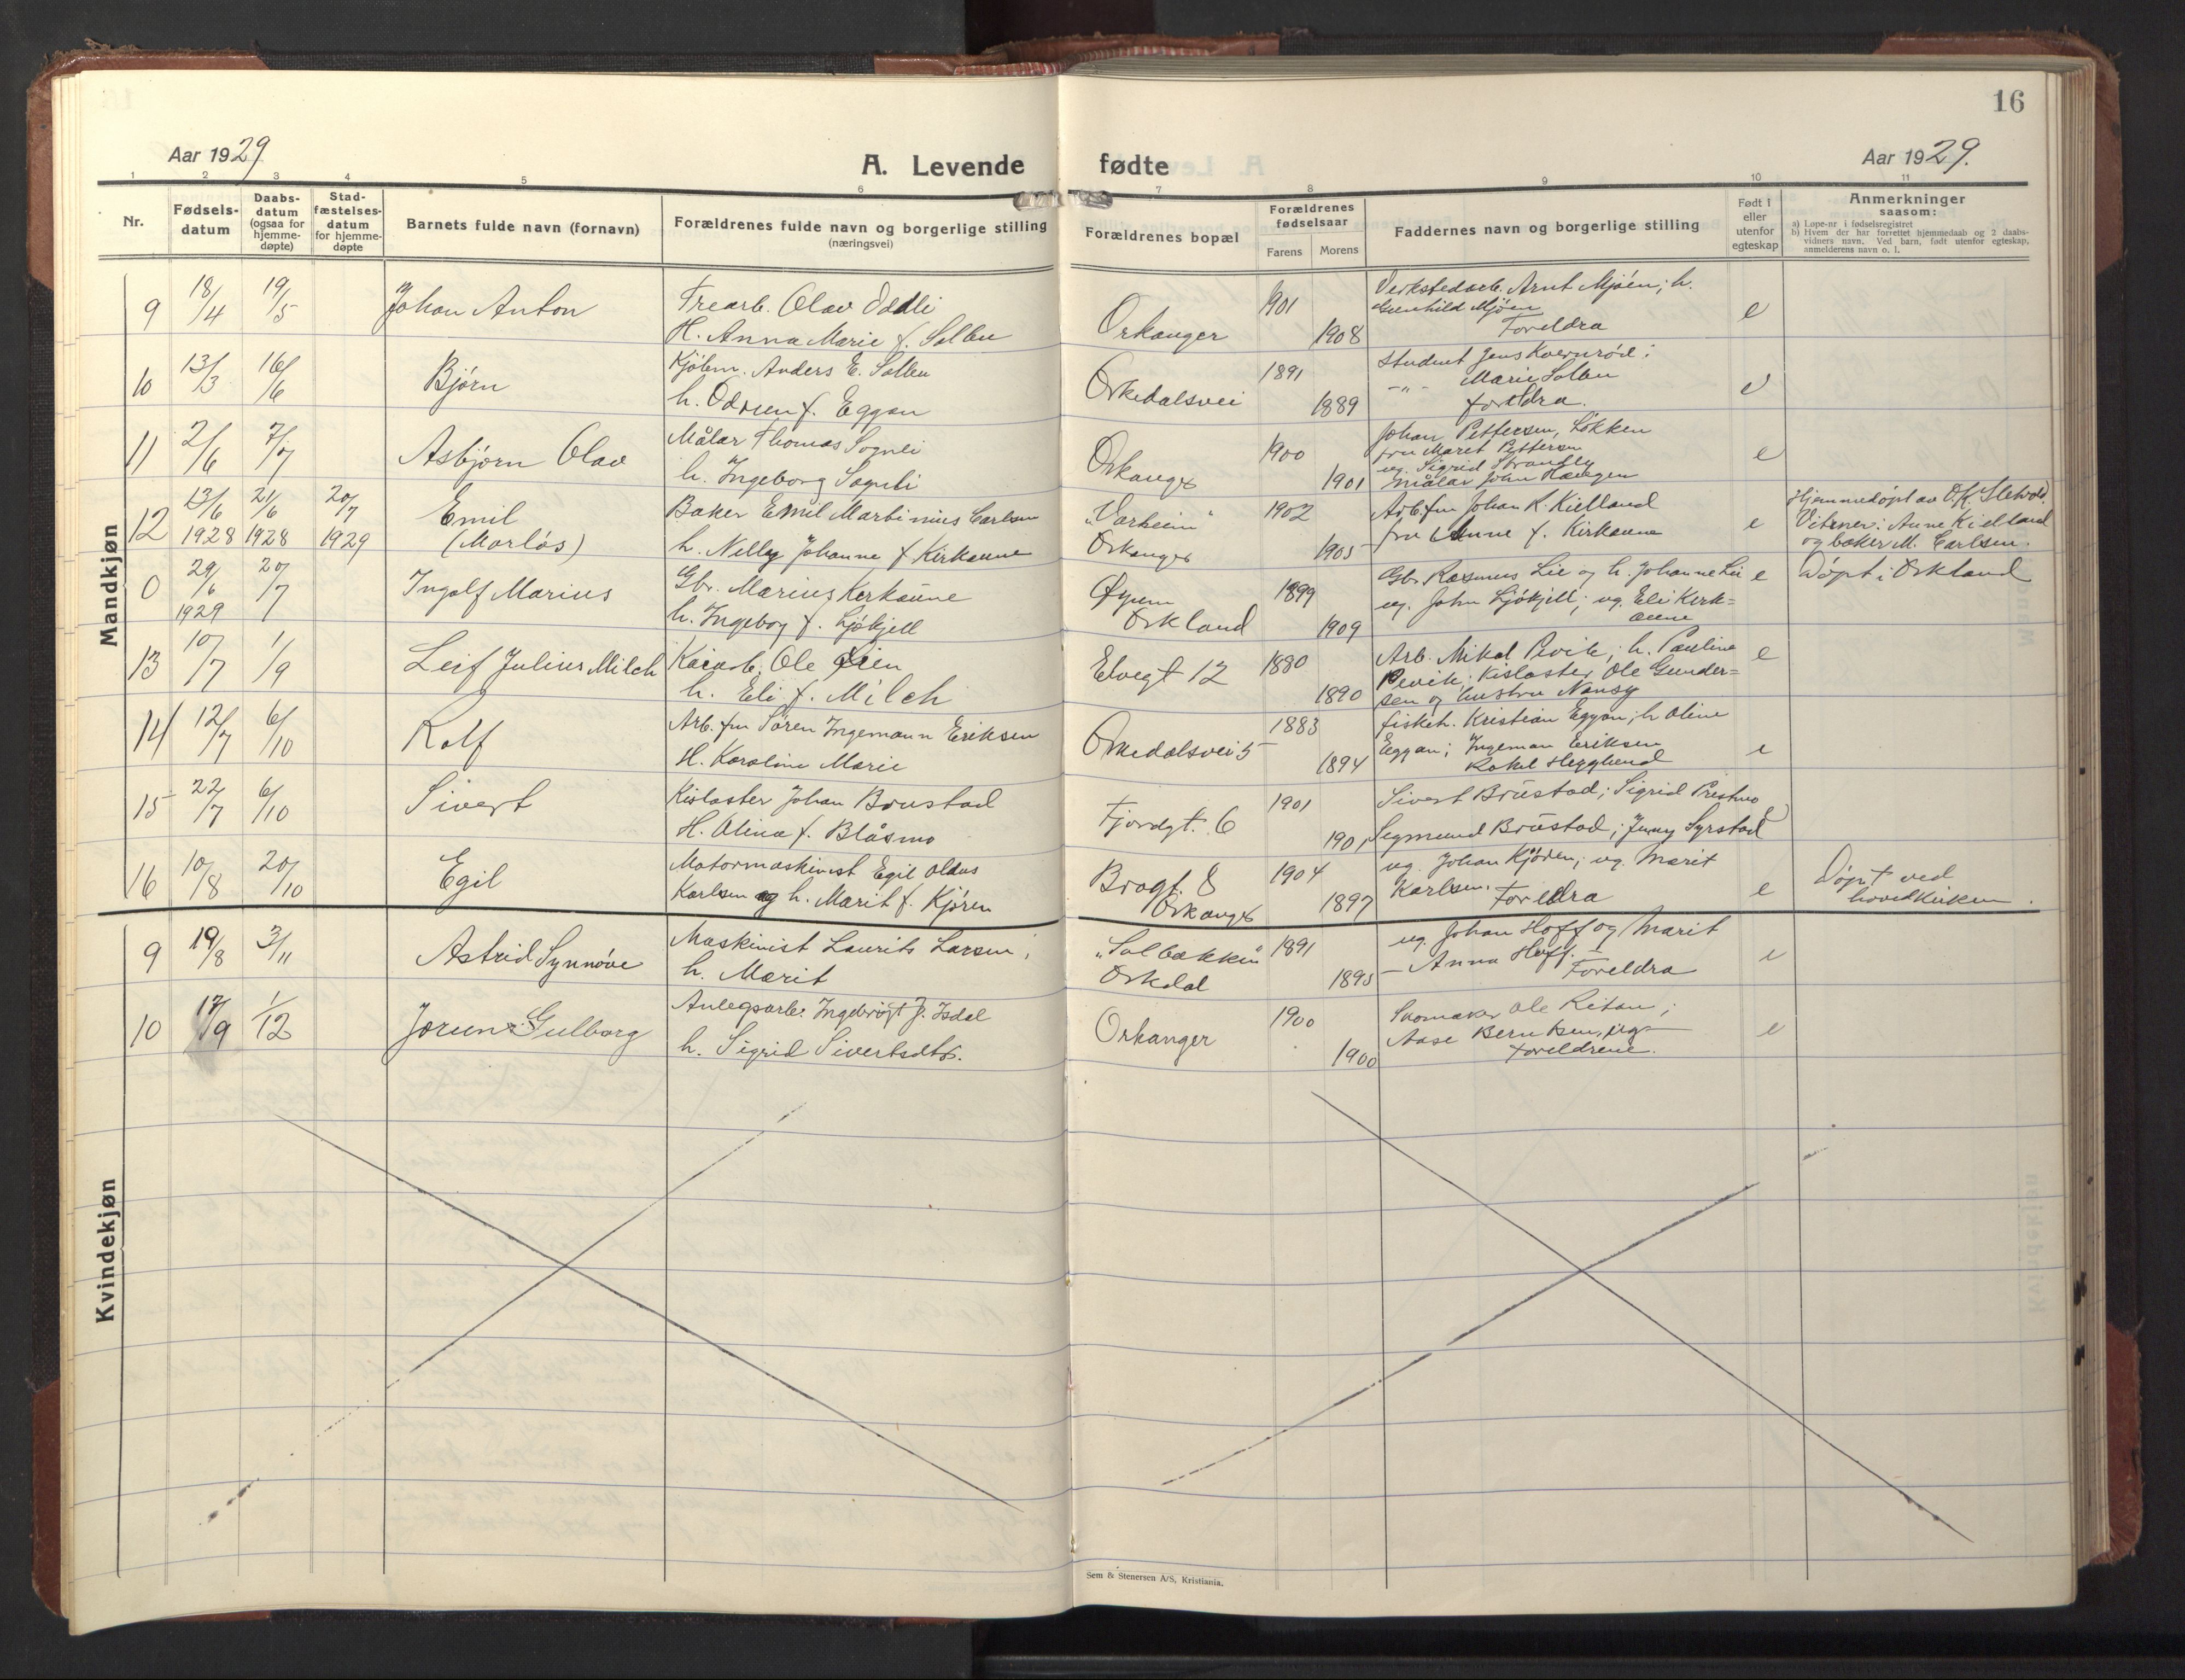 16
Aar 1929
A. Levende fødte
Aar 1929.
1 2 3 4 5 6 7 8 9 10 11
Nr.
Fødsels-
datum
Daabs-
datum
(ogsaa for
hjemme-
døpte)
Stad-
fæstelses-
datum
for hjemme-
døpte
Barnets fulde navn (fornavn)
Forældrenes fulde navn og borgerlige stilling
(næringsvei)
Forældrenes bopæl
Forældrenes
fødselsaar
Farens Morens
Faddernes navn og borgerlige stilling
Født i
eller
utenfor
egteskap
Anmerkninger
saasom:
a) Løpe-nr i fødselsregistret
b) Hvem der har forrettet hjemmedaab og 2 daabs-
vidners navn. Ved barn, født utenfor egteskap,
anmelderens navn o. l.
Mandkjøn
9 18/4 19/5 Johan Anton
Trearb. Olav Oddli
H. Anna Marie f. Solbu
Orkanger 1901 1908
Verkstedarb. Arnt Mjøen; h.
Gunhild Mjøen
Foreldra
e
10 13/3 16/6 Bjørn
Kjøbm. Anders E. Solbu
h. Odrun f. Eggan
Orkedalsvei 1891 1889
Student Jens Kvernrød;
-"- Marie Solbu
foreldra.
e
11 2/6 7/7 Asbjørn Olav
Målar Thomas Sognli
h. Ingeborg Sognli
Orkanger 1900 1901
Johan Pettersen, Løkken
fru Maret Pettersen
ug. Sigrid Strandly
målar John Haugen
e
12 13/6 1928 21/6 1928 20/7 1929 Emil
(Morløs)
Baker Emil Marbinius Carlsen
h. Nelly Johanne f. Kirkaune
"Varheim"
Orkanger 1902 1905
Arb.fm Johan K. Kielland
fru Anne f. Kirkaune
e
Hjemmedøpt av O.K. Sletvold
Vitner: Anne Kielland
og baker M. Carlsen.
0 29/6 1929 20/7 Ingolf Marius
Gbr. Marius Kirkaune
h. Ingeborg f. Ljøkjell
Øyum
Orkland 1899 1909
Gbr. Rasmus Lie og h. Johanne Lie
ug. John Ljøkjell; ug. Eli Kirk=
aune
e
Døpt i Orkland
13 10/7 1/9 Leif Julius Milch
Kaiarb. Ole Lien
h. Eli f. Milch
Elvegt 12 1880 1890
Arb. Mikal Rovik; h. Pauline
Revik; Kislaster Ole Gunder=
sen og hustru Nansy
e
14 12/7 6/10 Rolf
Arb. fm Søren Ingemann Eriksen
H. Karoline Marie
Orkedalsvei 5 1883 1894
fiskeh. Kristian Eggan; h. Oline
Eggan; Ingeman Eriksen
Rakel Hegglund
e
15 22/7 6/10 Sivert
Kislaster Johan Brustad
H. Olina f. Blåsmo
Fjordgt. 6 1901 1901
Sivert Brustad; Sigrid Prestmo
Segmund Brustad; Jenny Syrstad
e
16 10/8 20/10 Egil
Motormaskinist Egil Oldus
Karlsen og h. Marit f. Kjøren
Brogt. 8
Orkanger 1904 1897
ug. Johan Kjøren; ug. Marit
Karlsen.
Foreldra
e
Døpt ved
hovedkirken.
Kvindekjøn
9 19/8 3/11 Astrid Synnøve
Maskinist Laurits Larsen;
h. Marit
"Solbakken"
Orkdal 1891 1895
ug. Johan Hoff og Marit
Anna Hoff.
Foreldra
e
10 17/9 1/12 Jorunn Gulborg
Anlegsarb. Ingebrigt J. Isdal
h. Sigrid Sivertsdtr.
Orkanger 1900 1900
Skomaker Ole Ritan;
Aase Berntsen, ug
foreldrene.
e
Sem & Stenersen A/S, Kristiania.